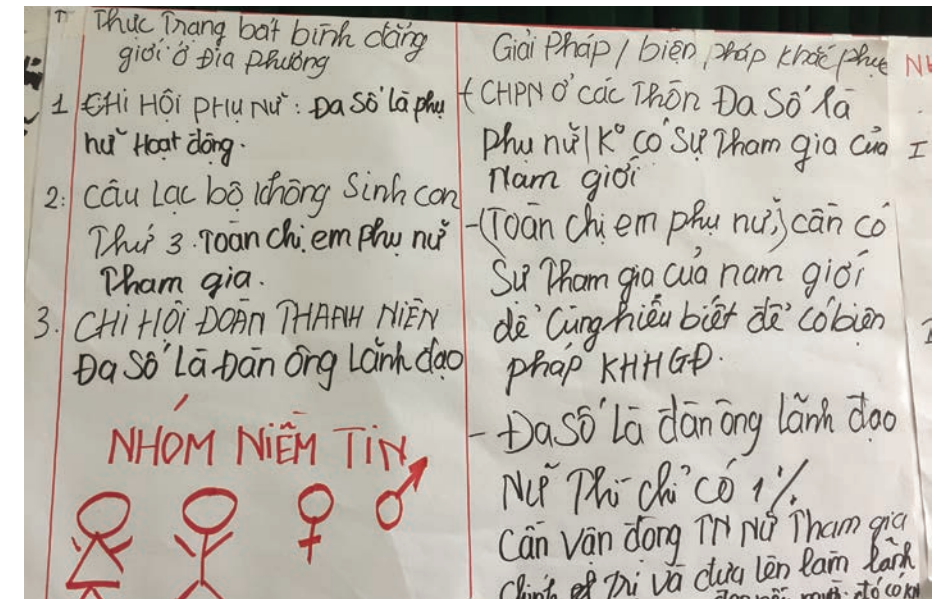 TT Thực Trạng bất bình đẳng
giới ở Địa phương
1 CHi HỘI PHỤ NỮ : Đa Số là phụ
nữ Hoạt động.
2: Câu Lạc bộ không Sinh con
Thứ 3. Toàn chị em phụ nữ
Tham gia.
3. CHI HỘI ĐOÀN THANH NIÊN
Đa Số Là Đàn ông Lãnh đạo
NHÓM NIỀM TIN
Giải Pháp / biện pháp khắc phục
+ CHPN Ở các Thôn Đa Số là
phụ nữ / K° có Sự Tham gia của
Nam giới
- (Toàn chị em phụ nữ;) cần có
Sự Tham gia của nam giới
để Cùng hiểu biết để có biện
pháp KHHGĐ.
- Đa Số Là đàn ông lãnh đạo
Nữ Thì chỉ có 1%
Cần vận động TN Nữ Tham gia
Chính trị và đưa lên làm lãnh
I